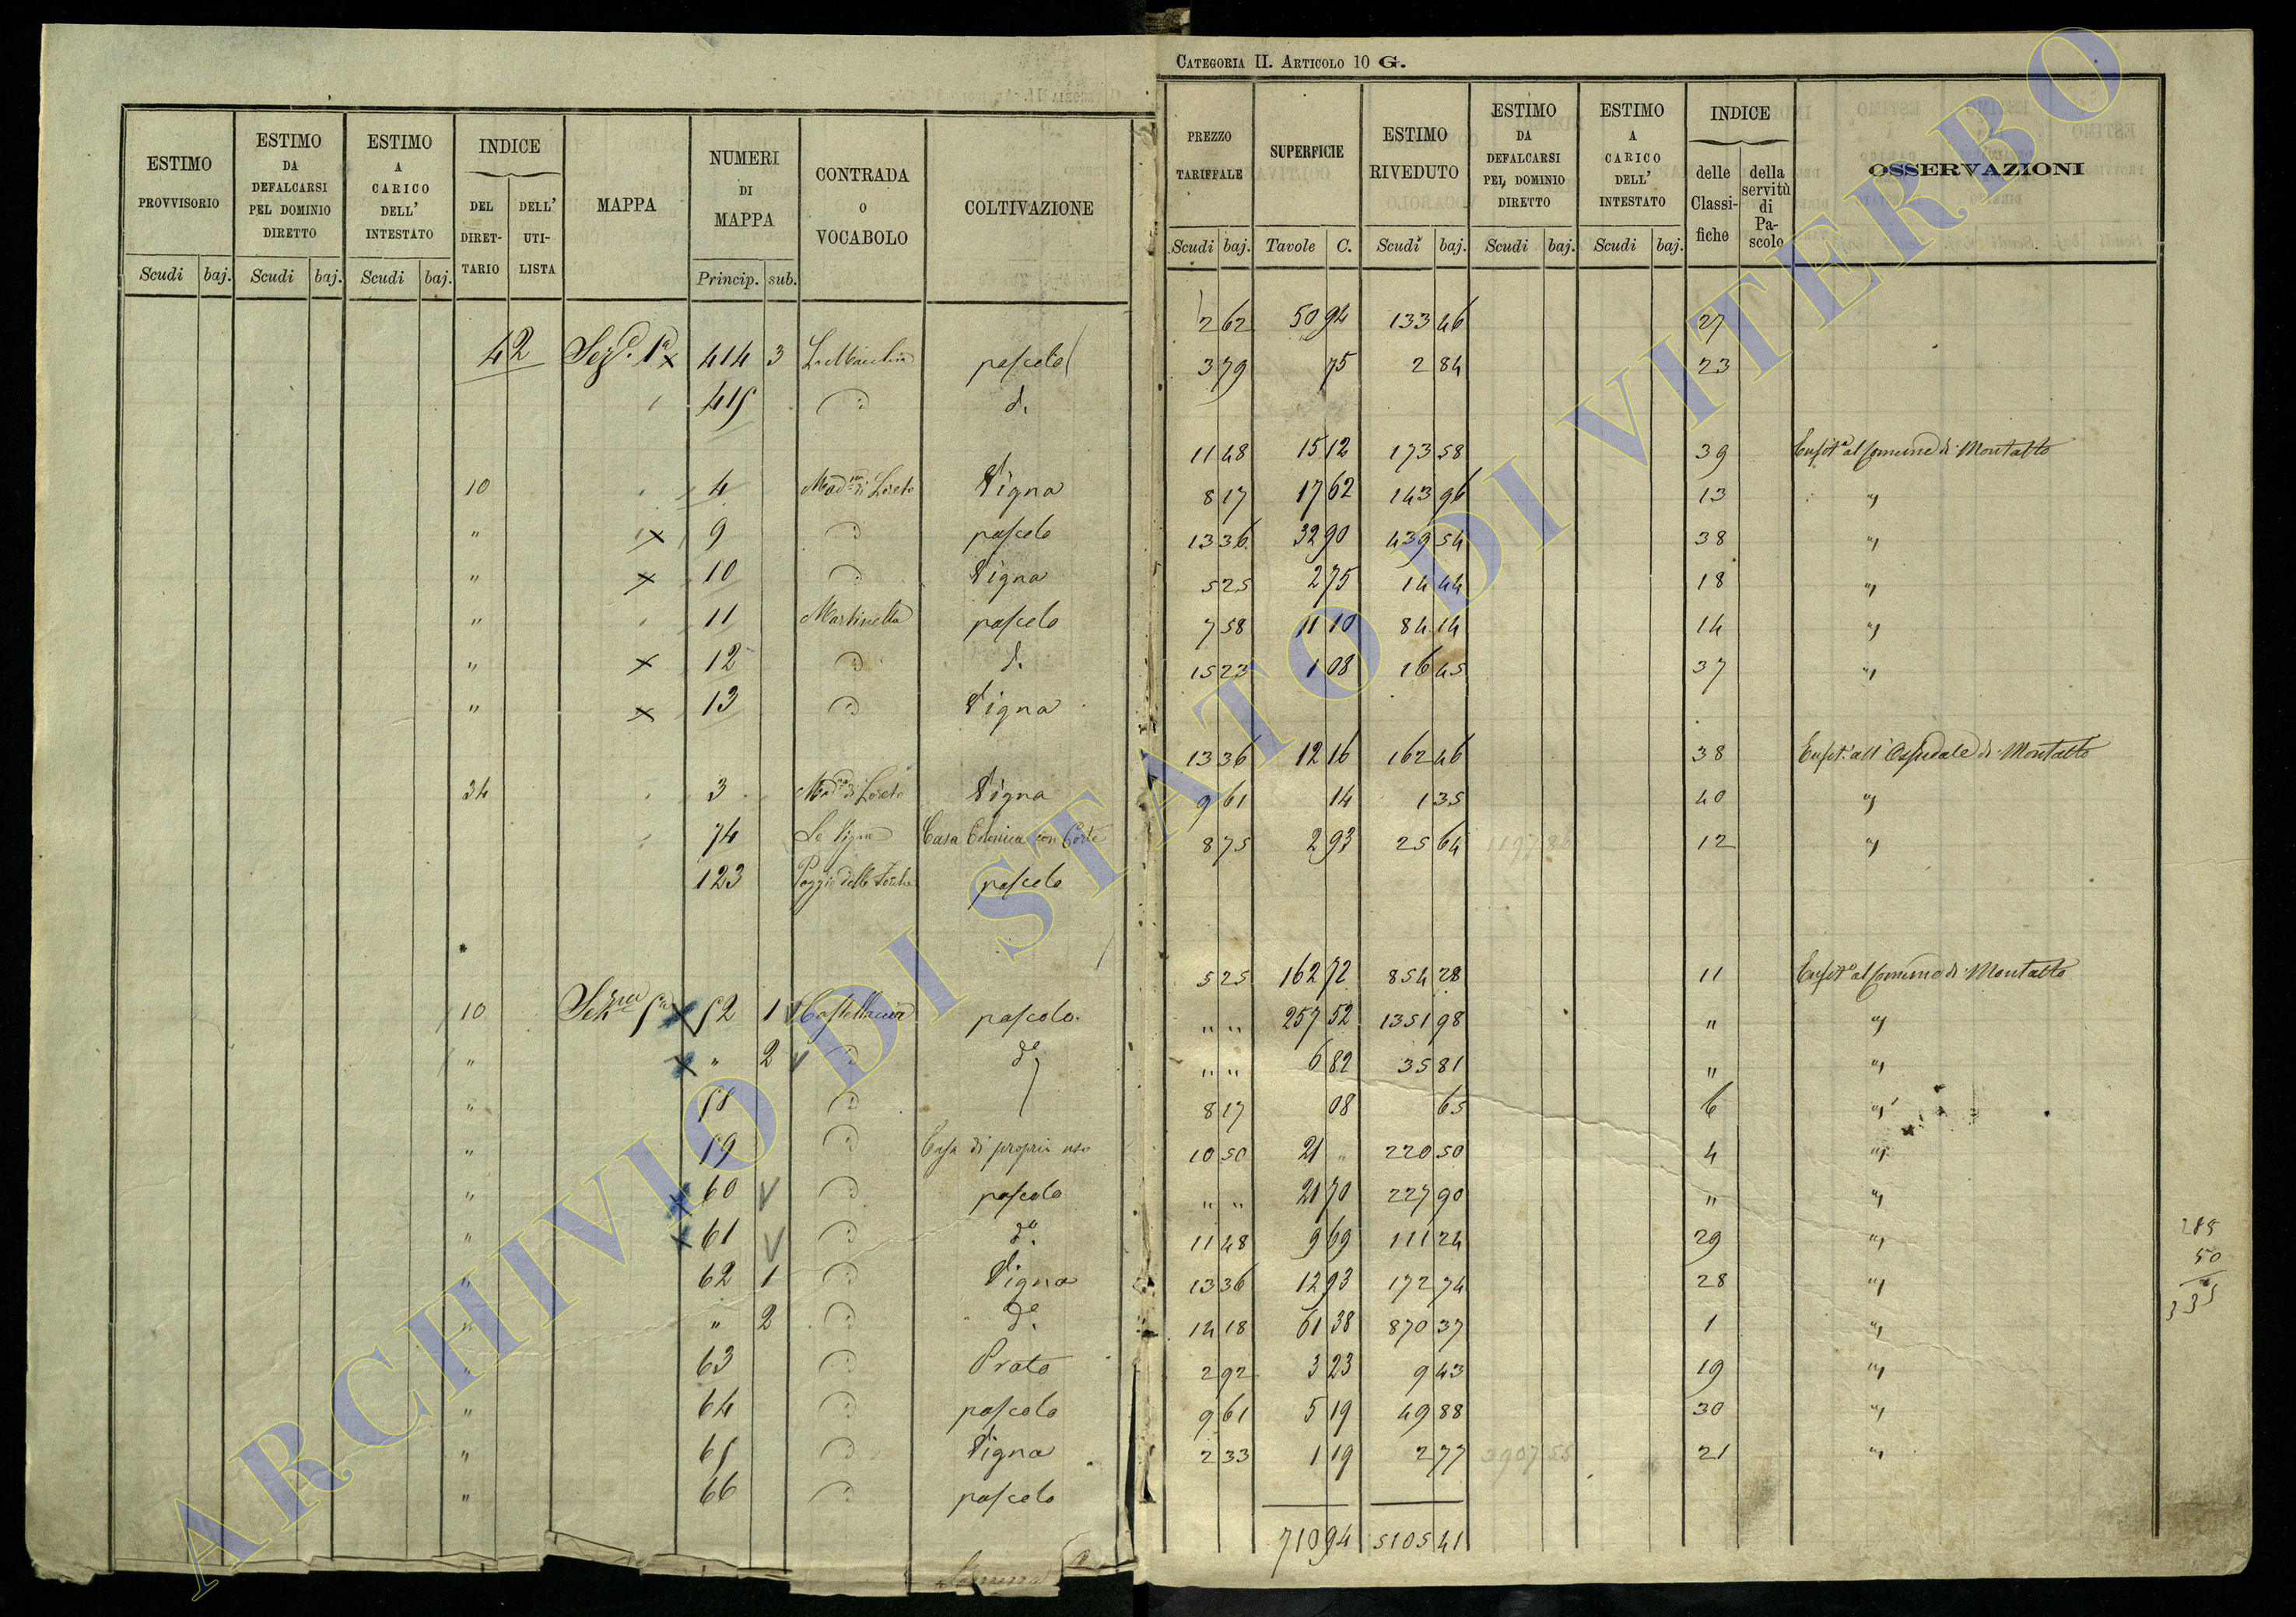 CATEGORIA II. ARTICOLO 10 G.
ESTIMO PROVVISORIO Scudi baj. | ESTIMO DA DEFALCARSI PEL DOMINIO DIRETTO Scudi baj. | ESTIMO A CARICO DELL' INTESTATO Scudi baj. | INDICE DEL DIRETTARIO DELL' UTILISTA | MAPPA | NUMERI DI MAPPA Princip. sub. | CONTRADA O VOCABOLO | COLTIVAZIONE
PREZZO TARIFFALE Scudi baj. | SUPERFICIE Tavole C. | ESTIMO RIVEDUTO Scudi baj. | ESTIMO DA DEFALCARSI PEL DOMINIO DIRETTO Scudi baj. | ESTIMO A CARICO DELL' INTESTATO Scudi baj. | INDICE delle Classifiche della servitù di Pascolo | OSSERVAZIONI
42 Sez.e 1a x 414 3 pascolo 2 62 50 94 133 46 27
415 " d. 3 79 75 2 84 23
10 4 Mad.na di Loreto Vigna 11 48 15 12 173 58 39 Enfit.a al Comune di Montalto
" x 9 " pascolo 8 17 17 62 143 96 13 "
" x 10 " Vigna 13 36 32 90 439 54 38 "
" 11 Martinella pascolo 5 25 2 75 14 44 18 "
" x 12 " d. 7 58 11 10 84 14 14 "
" x 13 " Vigna 15 23 1 08 16 45 37 "
34 3 Mad.na di Loreto Vigna 13 36 12 16 162 46 38 Enfit.a all'Ospedale di Montalto
74 Le Vigne Casa Colonica con Corte 9 61 14 1 35 40 "
123 Poggio delle Forche pascolo 8 75 2 93 25 64 1197 86 12 "
10 Sez.ne 5a x 52 1 V Castellaccio pascolo 5 25 162 72 854 28 11 Enfit.a al Comune di Montalto
" x " 2 V " d.o " " 257 52 1351 98 " "
" 58 " " " 6 82 35 81 " "
" 59 " Casa di propria uso 8 17 08 65 6 "
" x 60 V " pascolo 10 50 21 " 220 50 4 "
" x 61 V " d.o " " 21 70 227 90 " "
" 62 1 " Vigna 11 48 9 69 111 24 29 "
" " 2 " d.o 13 36 12 93 172 74 28 "
" 63 " Prato 14 18 61 38 870 37 1 "
" 64 " pascolo 2 92 3 23 9 43 19 "
" 65 " Vigna 9 61 5 19 49 88 30 "
" 66 " pascolo 2 33 1 19 2 77 3907 55 21 "
Somma 710 94 5105 41
285
50
335
ARCHIVIO DI STATO DI VITERBO